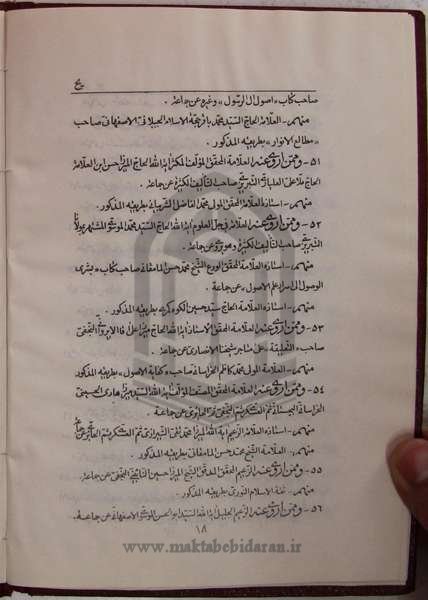 صاحب کتاب «اصول آل الرسول» وغیره عن جماعة .
منهم - العلامة الحاج السید محمد باقر حجة الاسلام الجیلانی الاصفهانی صاحب
«مطالع الانوار» بطریقته المذکور .
۵۱ - وممن اروی عنه العلامة المحقق المؤلف المکثر آیة الله الحاج المیرزا حسن ابن العلامة
الحاج ملا علی العلیاری التبریزی صاحب التآلیف الکثیرة عن جماعة .
منهم - استاذه العلامة المحقق المولی محمد الفاضل الشربیانی بطریقته المذکور .
۵۲ - وممن اروی عنه العلامة فی جل العلوم آیة الله الحاج السید محمد الموسوی المشتهر بمولانا
التبریزی صاحب التآلیف الکثیرة وهو یروی عن جماعة .
منهم - استاذه العلامة المحقق الورع الشیخ محمد حسن المامقانی صاحب کتاب «بشری
الوصول الی اسرار علم الاصول» عن جماعة .
منهم - استاذه العلامة الحاج سید حسین الکوه کمری بطریقته المذکور .
۵۳ - وممن اروی عنه العلامة المحقق الاستاذ آیة الله الحاج میرزا علی آقا الایروانی النجفی
صاحب «التعلیقة» علی متاجر شیخنا الانصاری عن جماعة .
منهم - العلامة المولی محمد کاظم الخراسانی صاحب «کفایة الاصول» بطریقته المذکور
۵۴ - وممن اروی عنه العلامة المحقق المصنف المؤلف آیة الله السید میرزا هادی الحسینی
الخراسانی البجستانی ثم العسکری ثم النجفی ثم الحائری عن جماعة .
منهم - استاذه العلامة الزعیم آیة الله المیرزا محمد تقی الشیرازی ثم العسکری ثم الحائری عن
منهم - العلامة الشیخ محمد حسن المامقانی بطریقته المذکور .
۵۵ - وممن اروی عنه الزعیم المحقق المدقق الشیخ المیرزا حسین النائینی النجفی عن جماعة .
منهم - ثقة الاسلام النوری بطریقته المذکور .
۵۶ - وممن اروی عنه الزعیم الجلیل آیة الله السید ابو الحسن الموسوی الاصفهانی عن جماعة .
۱۸
www.maktabebidaran.ir